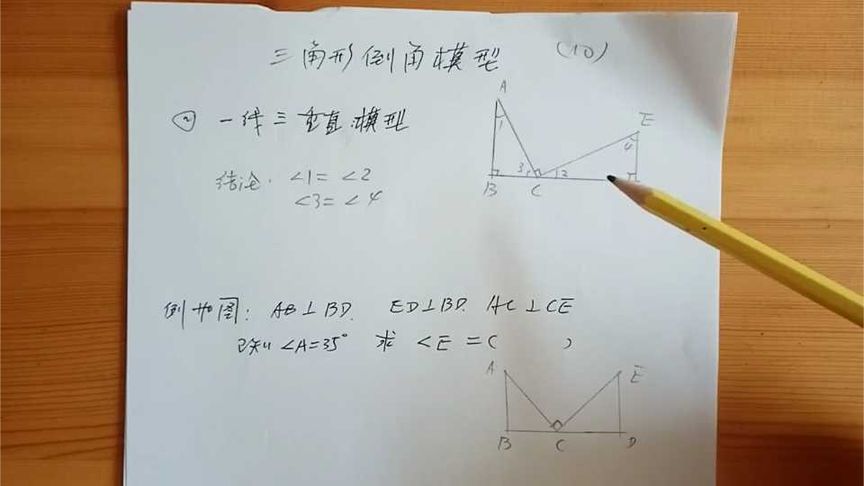 三角形倒角模型 (10)
② 一线三垂直模型
结论: ∠1=∠2
∠3=∠4
A
1
E
4
3 2
B C
例 如图: AB⊥BD. ED⊥BD. AC⊥CE
已知 ∠A=35° 求 ∠E=( )
A E
B C D